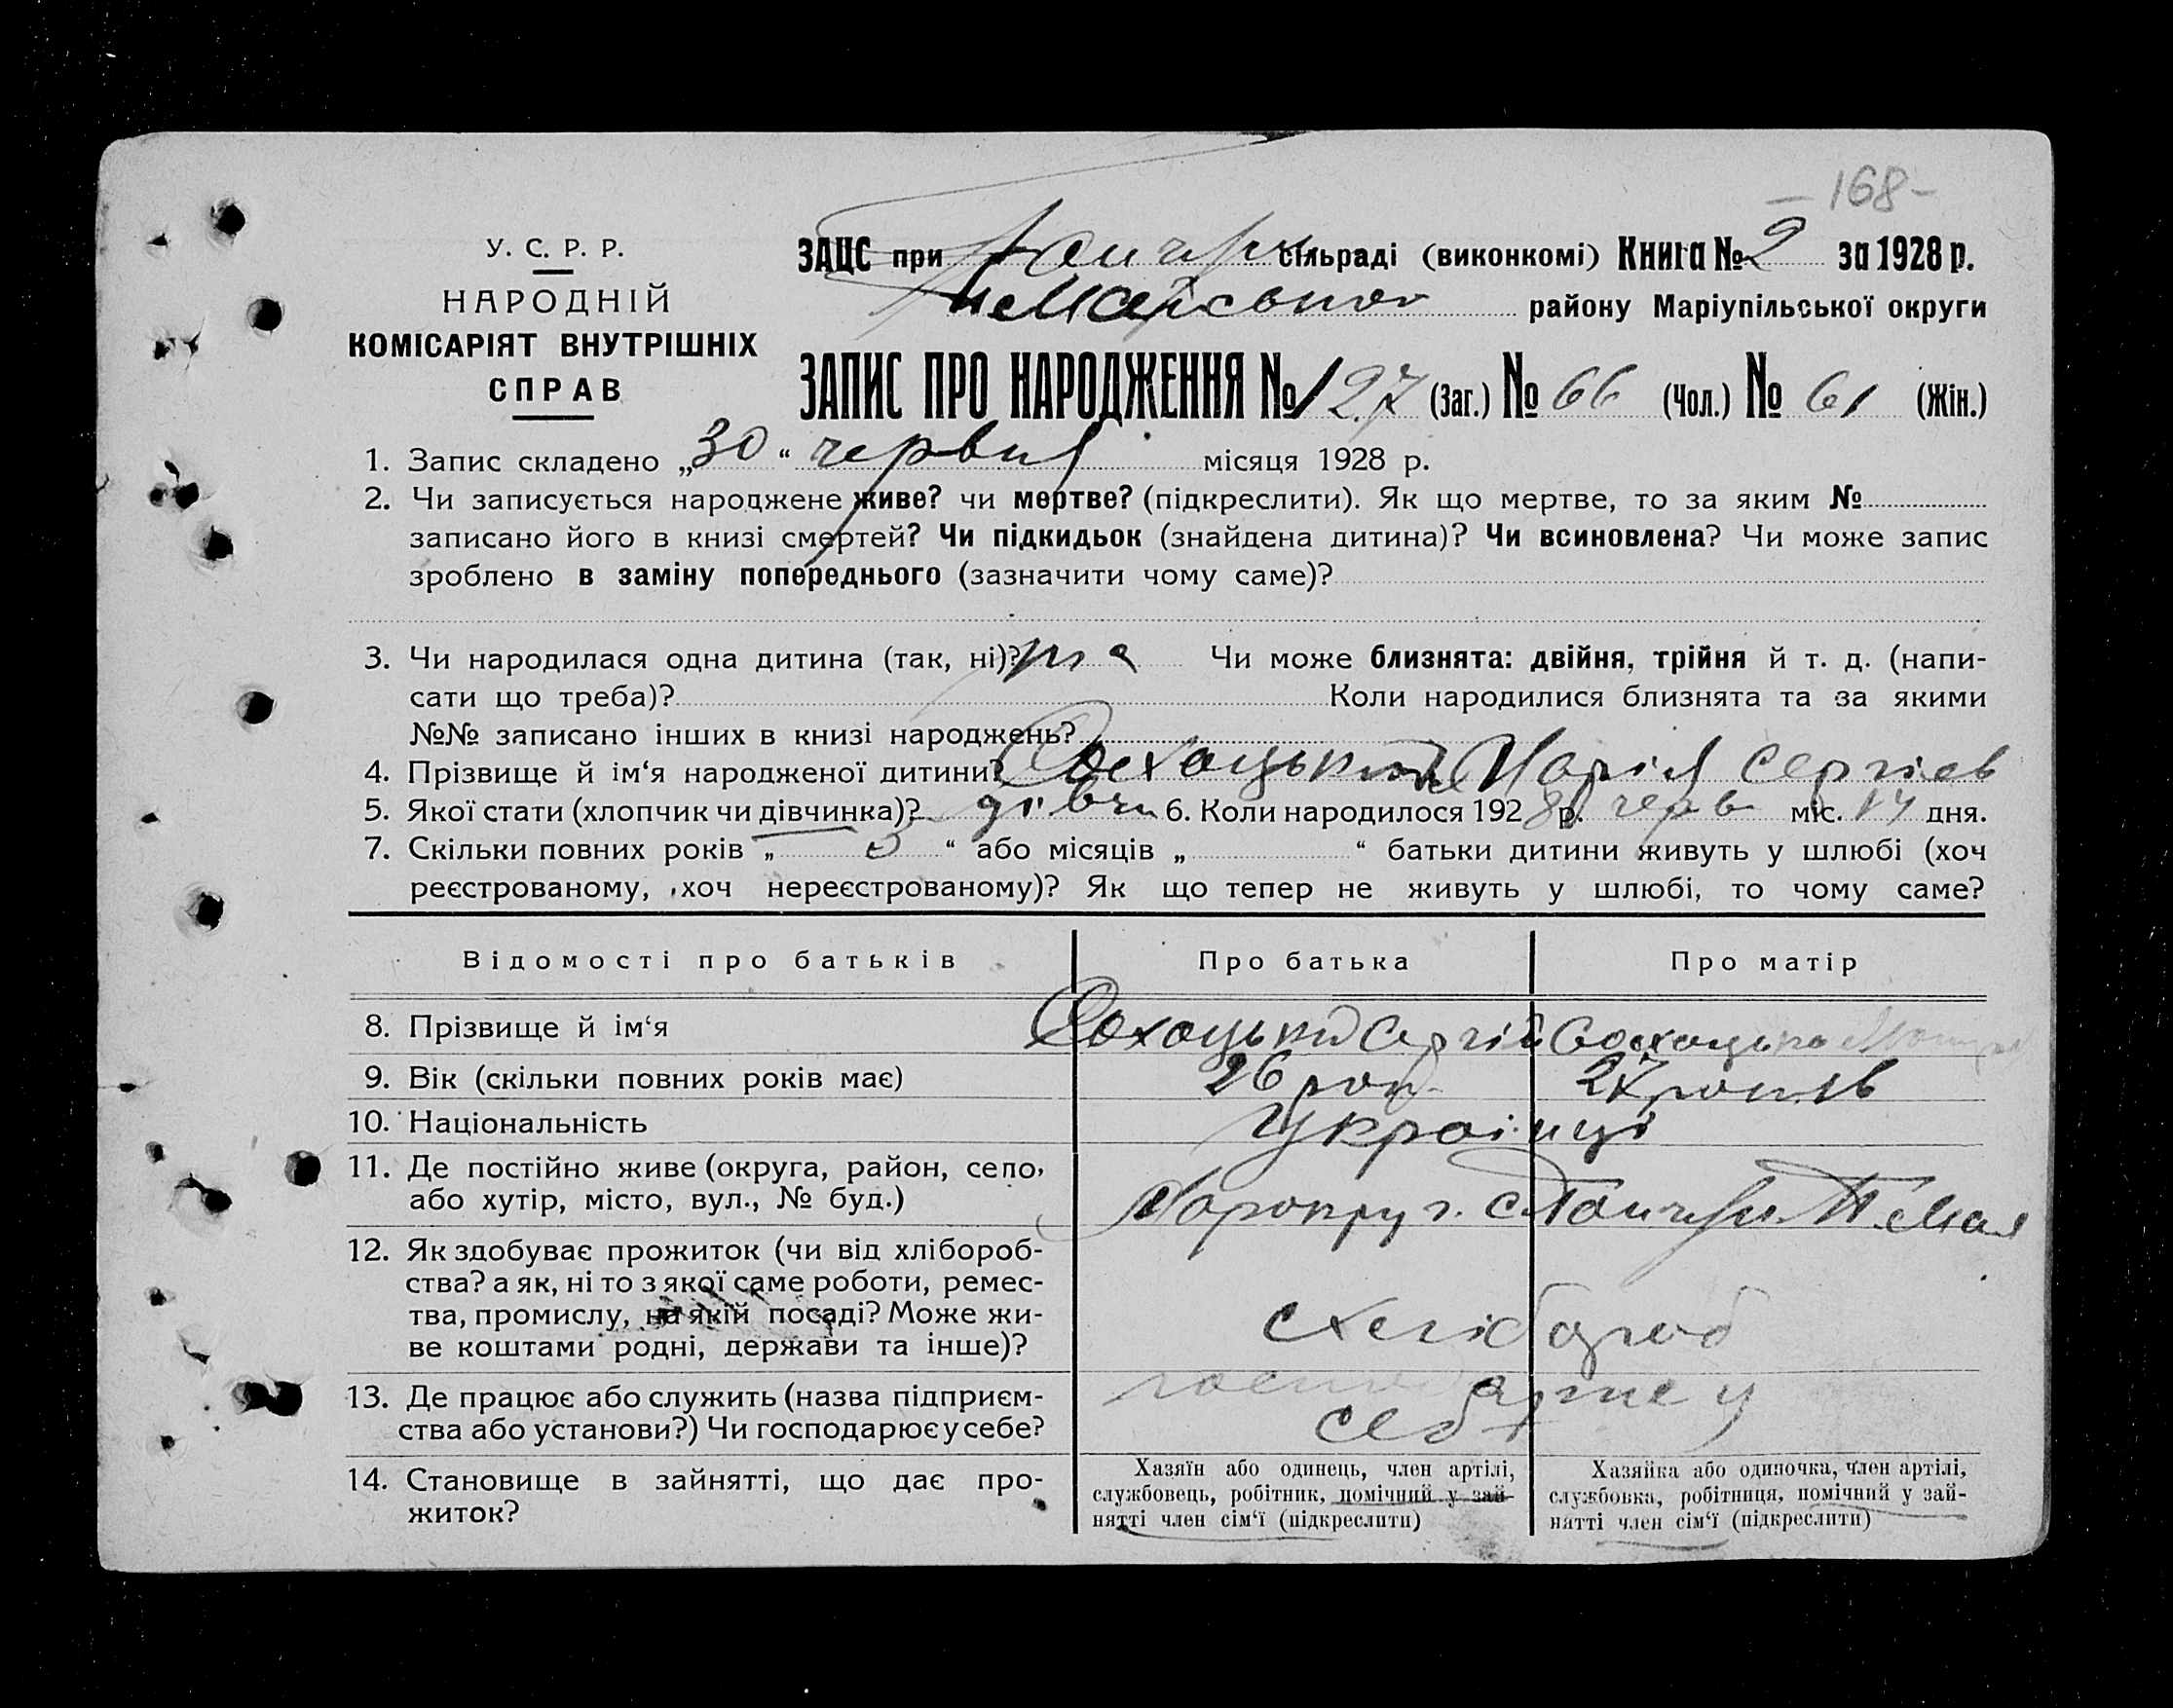 — 168 —
У. С. Р. Р.
НАРОДНІЙ
КОМІСАРІЯТ ВНУТРІШНІХ
СПРАВ
ЗАЦС при сільраді (виконкомі) Книга № 2 за 1928 р.
району Маріупільської округи
ЗАПИС ПРО НАРОДЖЕННЯ № 127 (Заг.) № 66 (Чол.) № 61 (Жін.)
1. Запис складено „30“ червня місяця 1928 р.
2. Чи записується народжене живе? чи мертве? (підкреслити). Як що мертве, то за яким №
записано його в книзі смертей? Чи підкидьок (знайдена дитина)? Чи всиновлена? Чи може запис
зроблено в заміну попереднього (зазначити чому саме)?
3. Чи народилася одна дитина (так, ні)? Чи може близнята: двійня, трійня й т. д. (напи-
сати що треба)? Коли народилися близнята та за якими
№№ записано інших в книзі народжень?
4. Прізвище й ім‘я народженої дитини? Марія Сергіев
5. Якої стати (хлопчик чи дівчинка)? дівчи 6. Коли народилося 1928 р. черв міс. 14 дня.
7. Скільки повних років „ 3 “ або місяців „ “ батьки дитини живуть у шлюбі (хоч
реєстрованому, хоч нереєстрованому)? Як що тепер не живуть у шлюбі, то чому саме?
Відомості про батьків Про батька Про матір
8. Прізвище й ім‘я Сохацький Сергій
9. Вік (скільки повних років має) 26 рок 27 років
10. Національність Українці
11. Де постійно живе (округа, район, село,
або хутір, місто, вул., № буд.)
12. Як здобуває прожиток (чи від хлібороб-
ства? а як, ні то з якої саме роботи, ремес-
тва, промислу, на якій посаді? Може жи-
ве коштами родні, держави та інше)?
13. Де працює або служить (назва підприєм-
ства або установи?) Чи господарює у себе?
14. Становище в зайнятті, що дає про-
житок?
Хазяїн або одинець, член артілі,
службовець, робітник, помічний у зай-
нятті член сім‘ї (підкреслити)
Хазяйка або одиночка, член артілі,
службовка, робітниця, помічний у зай-
нятті член сім‘ї (підкреслити)